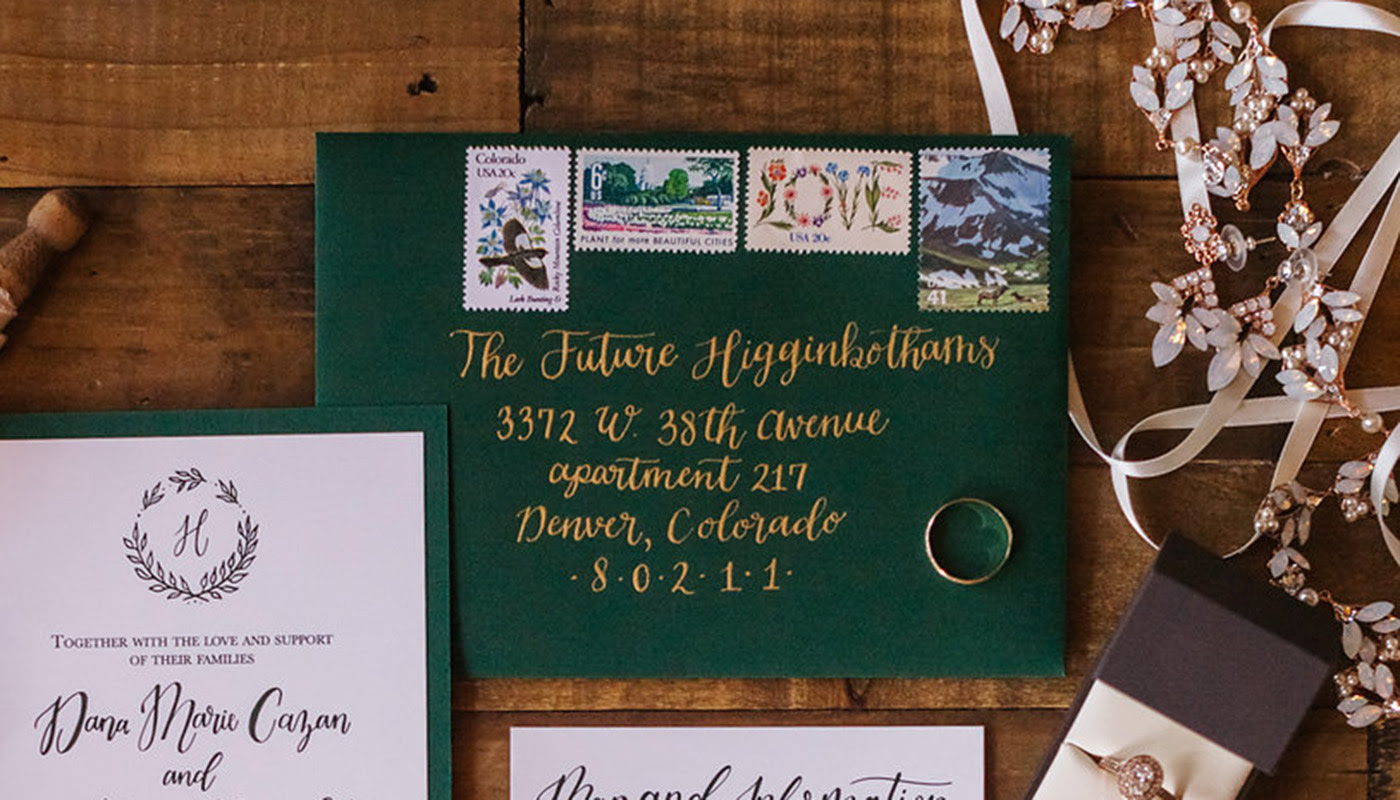 Colorado
USA 20c
Rocky Mountain Columbine
Lark Bunting &
6c
U.S.
PLANT for more BEAUTIFUL CITIES
LOVE
USA 20c
USA
41
The Future Higginbothams
3372 W. 38th Avenue
apartment 217
Denver, Colorado
·8·0·2·1·1·
H
Together with the love and support
of their families
Dana Marie Cazan
and
Map and Information